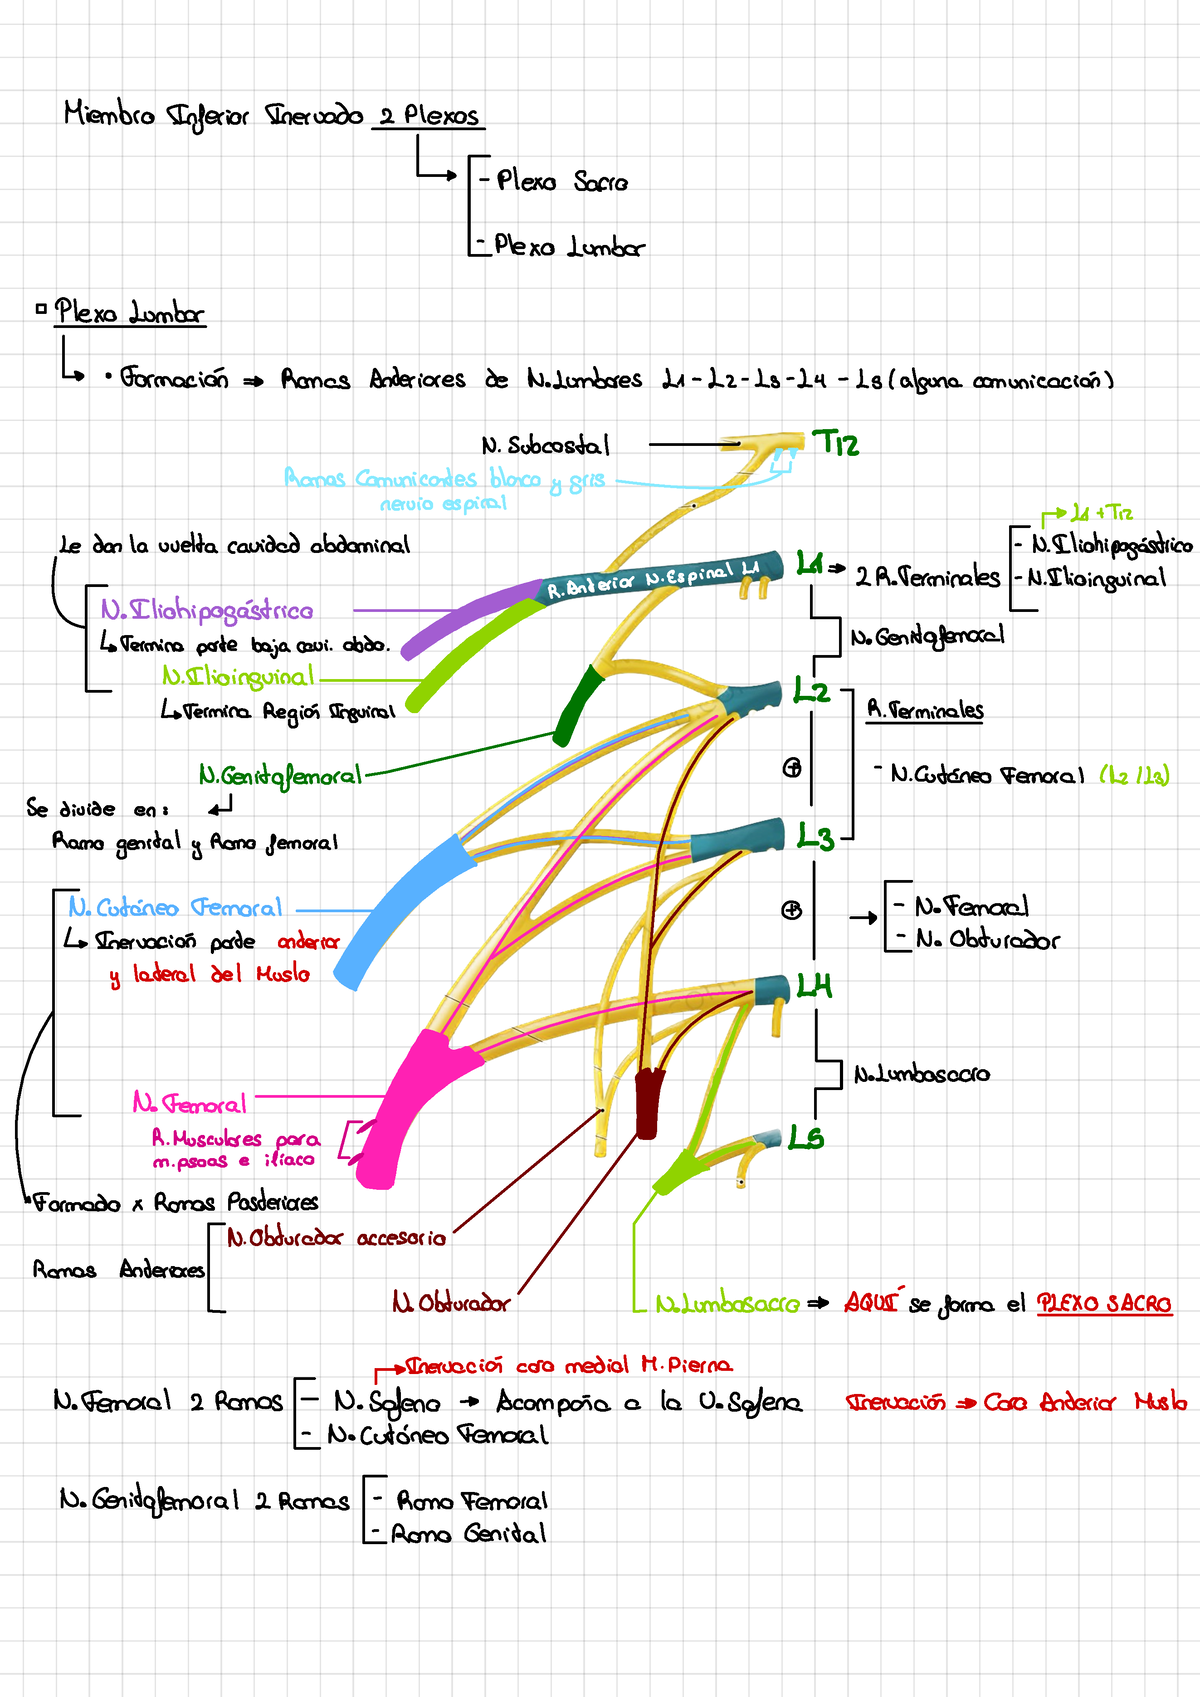 Miembro Inferior Inervado 2 Plexos
- Plexo Sacro
- Plexo Lumbar
Plexo Lumbar
• Formación ⇒ Ramas Anteriores de N.Lumbares L1 - L2 - L3 - L4 - L5 (alguna comunicación)
N. Subcostal
T12
Ramas Comunicantes blanco y gris
nervio espinal
L1 + T12
Le dan la vuelta cavidad abdominal
- N.Iliohipogástrico
L1 ⇒ 2 R.Terminales
- N.Ilioinguinal
R.Anterior N.Espinal L1
N.Iliohipogástrico
↳ Termina parte baja cavi. abdo.
N.Genitofemoral
N.Ilioinguinal
↳ Termina Región Inguinal
L2
R.Terminales
N.Genitofemoral
- N.Cutáneo Femoral (L2 / L3)
Se divide en:
Ramo genital y Ramo femoral
L3
N.Cutáneo Femoral
- N.Femoral
↳ Inervación parte anterior
- N. Obturador
y lateral del Muslo
L4
N.Lumbosacro
N.Femoral
R.Musculares para
m.psoas e ilíaco
L5
Formado x Ramas Posteriores
N.Obturador accesorio
Ramas Anteriores
N.Obturador
N.Lumbosacro ⇒ AQUÍ se forma el PLEXO SACRO
Inervación cara medial M.Pierna
N.Femoral 2 Ramas
- N.Safeno → Acompaña a la V.Safena
Inervación ⇒ Cara Anterior Muslo
- N.Cutáneo Femoral
N.Genitofemoral 2 Ramas
- Ramo Femoral
- Ramo Genital